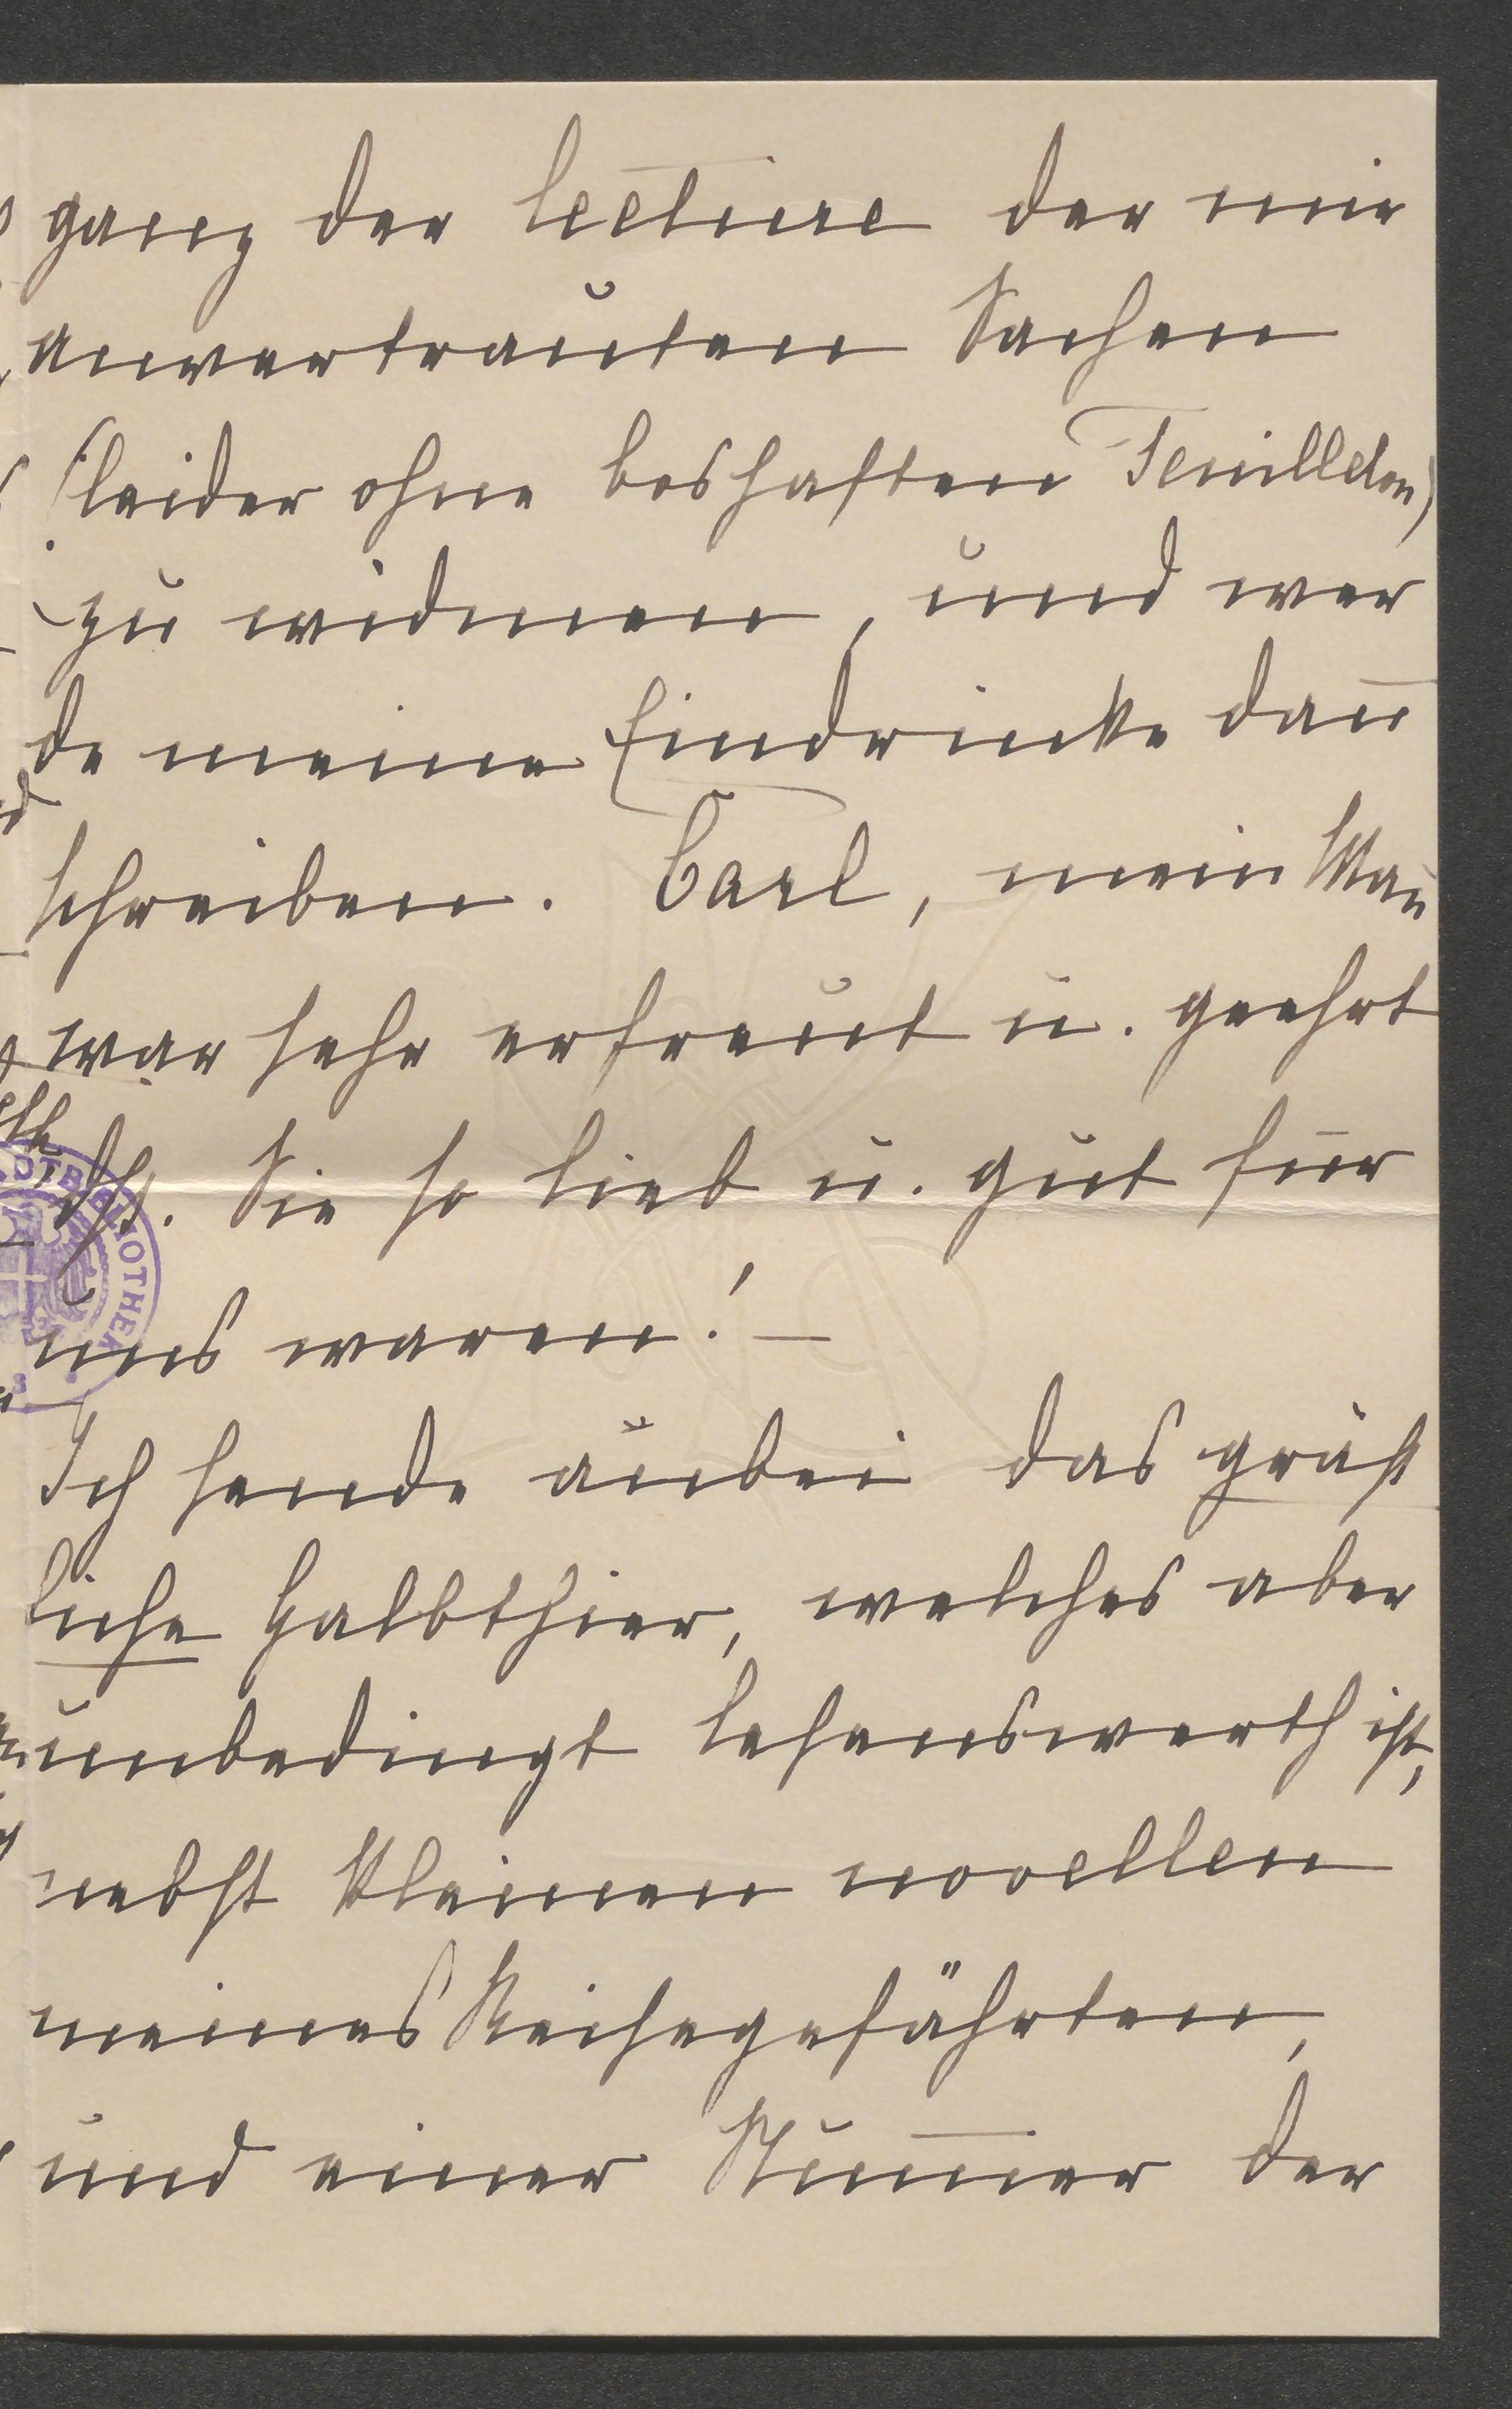 ganz der lectüre der mir
anvertrauten Sachen
(leider ohne boshaften Feuilleton)
zu widmen, und wer
de meine Eindrücke dan̅
schreiben. Carl, mein Man̅
war sehr erfreut u. geehrt
dß. Sie so lieb u. gut für
uns waren! —
Ich sende anbei das gräß
liche Halbthier, welches aber
unbedingt lesenswerth ist,
nebst kleinen novellen
meines Reisegefährten,
und einer Num̅er der
OTHEK